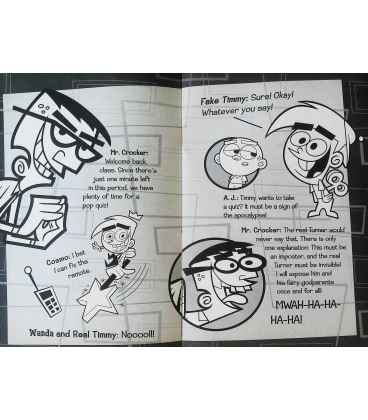 Mr. Crocker:
Welcome back,
class. Since there's
just one minute left
in this period, we have
plenty of time for a
pop quiz!
Cosmo: I bet
I can fix the
remote.
Wanda and Real Timmy: Nooooo!!!
Fake Timmy: Sure! Okay!
Whatever you say!
A. J.: Timmy wants to take
a quiz? It must be a sign of
the apocalypse!
Mr. Crocker: The real Turner would
never say that. There is only
one explanation: This must be
an imposter, and the real
Turner must be invisible!
I will expose him and
his fairy godparents
once and for all!
MWAH-HA-HA-
HA-HA!